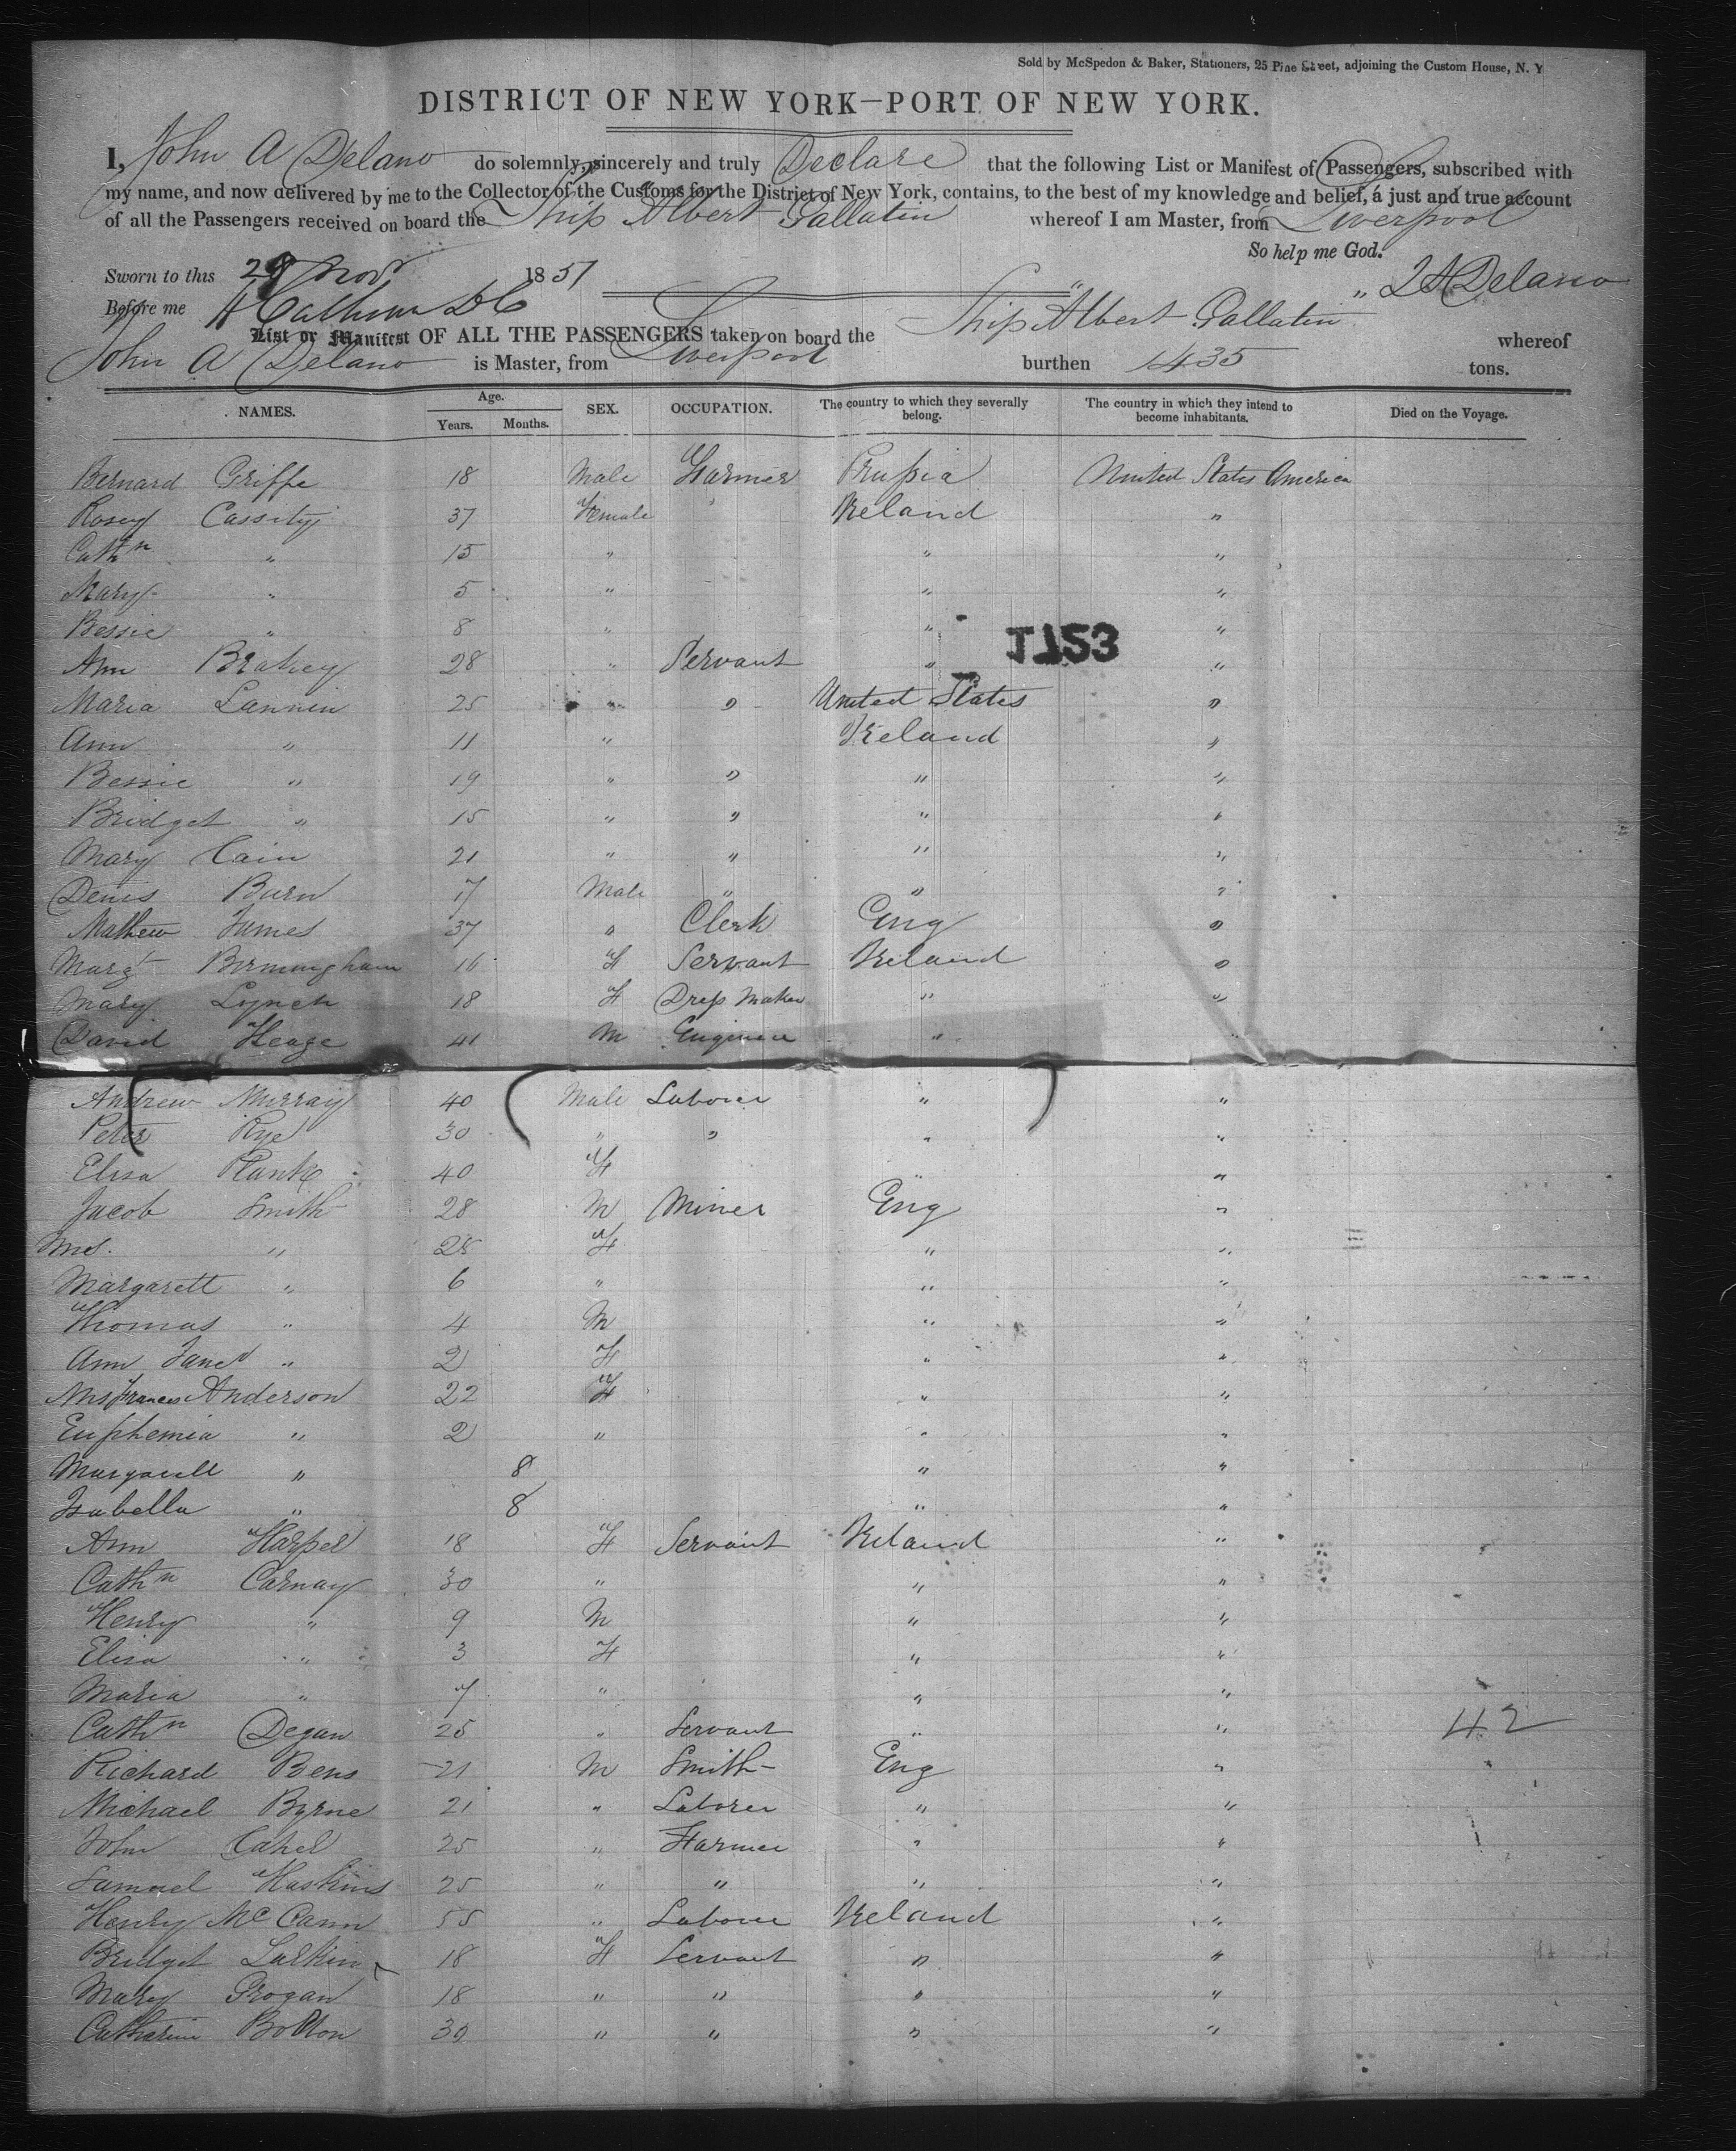 Sold by McSpedon & Baker, Stationers, 25 Pine Street, adjoining the Custom House, N. Y
DISTRICT OF NEW YORK—PORT OF NEW YORK.
I, John A Delano do solemnly, sincerely and truly Declare that the following List or Manifest of Passengers, subscribed with
my name, and now delivered by me to the Collector of the Customs for the District of New York, contains, to the best of my knowledge and belief, a just and true account
of all the Passengers received on board the Ship Albert Gallatin whereof I am Master, from Liverpool
So help me God.
Sworn to this 28 Nov 1851 J A Delano
Before me H Calhoun D C
List or Manifest OF ALL THE PASSENGERS taken on board the Ship Albert Gallatin whereof
John A Delano is Master, from Liverpool burthen 1435 tons.
NAMES. Age. SEX. OCCUPATION. The country to which they severally belong. The country in which they intend to become inhabitants. Died on the Voyage.
Years. Months.
Bernard Griffe 18 Male Farmer Prussia United States America
Rosey Cassity 37 Female Ireland "
Cathn " 15 " " "
Mary " 5 " " "
Bessie " 8 " " "
1153
Ann Brahey 28 " Servant " "
Maria Lannin 25 " " United States "
Ann " 11 " Ireland "
Bessie " 19 " " " "
Bridget " 15 " " " "
Mary Cain 21 " " " "
Denis Burn 17 Male " " "
Mathew James 37 " Clerk Eng "
Margt Birmingham 16 F Servant Ireland "
Mary Lynch 18 F Dress Maker " "
David Heage 41 M Engineer "
Andrew Murray 40 Male Laborer " "
Peter Rye 30 " " " "
Elisa Plank 40 F " "
Jacob Smith 28 M Miner Eng "
Mrs. " 28 F " "
Margarett " 6 " " "
Thomas " 4 M " "
Ann Janet " 2 F " "
Mrs Frances Anderson 22 F " "
Euphemia " 2 " " "
Margarett " 8 " "
Isabella " 8 " "
Ann Harper 18 F Servant Ireland "
Cathn Carnay 30 " " "
Henry " 9 M " "
Elisa " 3 F " "
Maria " 7 " " "
Cathn Degan 25 " Servant " " 42
Richard Bens 21 M Smith Eng "
Michael Byrne 21 " Laborer " "
John Cahel 25 " Farmer " "
Samuel Haskins 25 " " " "
Henry McCann 55 " Laborer Ireland "
Bridget Larkin 18 F Servant " "
Mary Grogan 18 " " " "
Catharine Bolton 30 " " " "